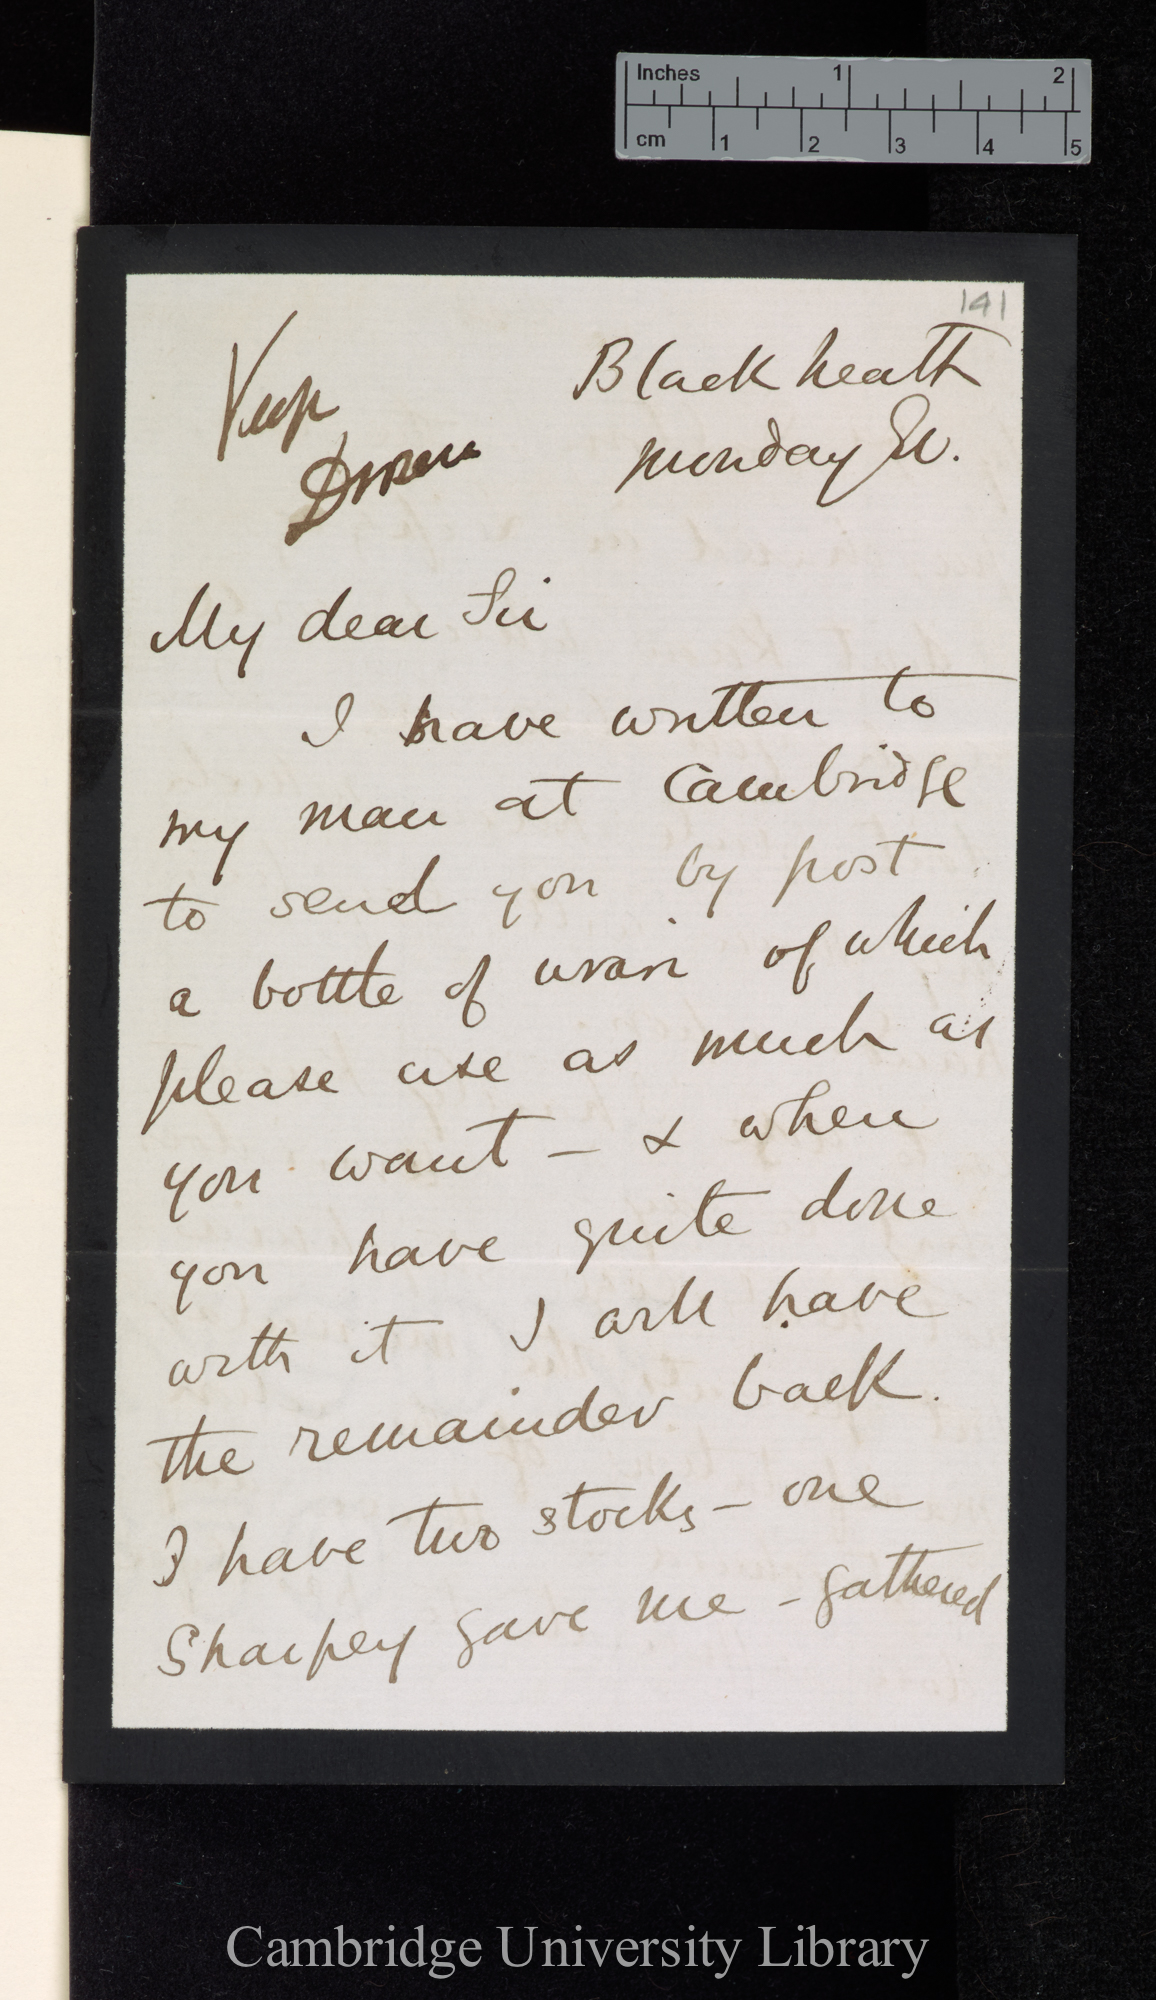 Inches 1 2
cm 1 2 3 4 5
141
Keep
Drosera
Blackheath
Monday Ev.
My dear Sir
I have written to
my man at Cambridge
to send you by post
a bottle of urari of which
please use as much as
you want – & when
you have quite done
with it I will have
the remainder back.
I have two stocks – one
Sharpey gave me – gathered
Cambridge University Library